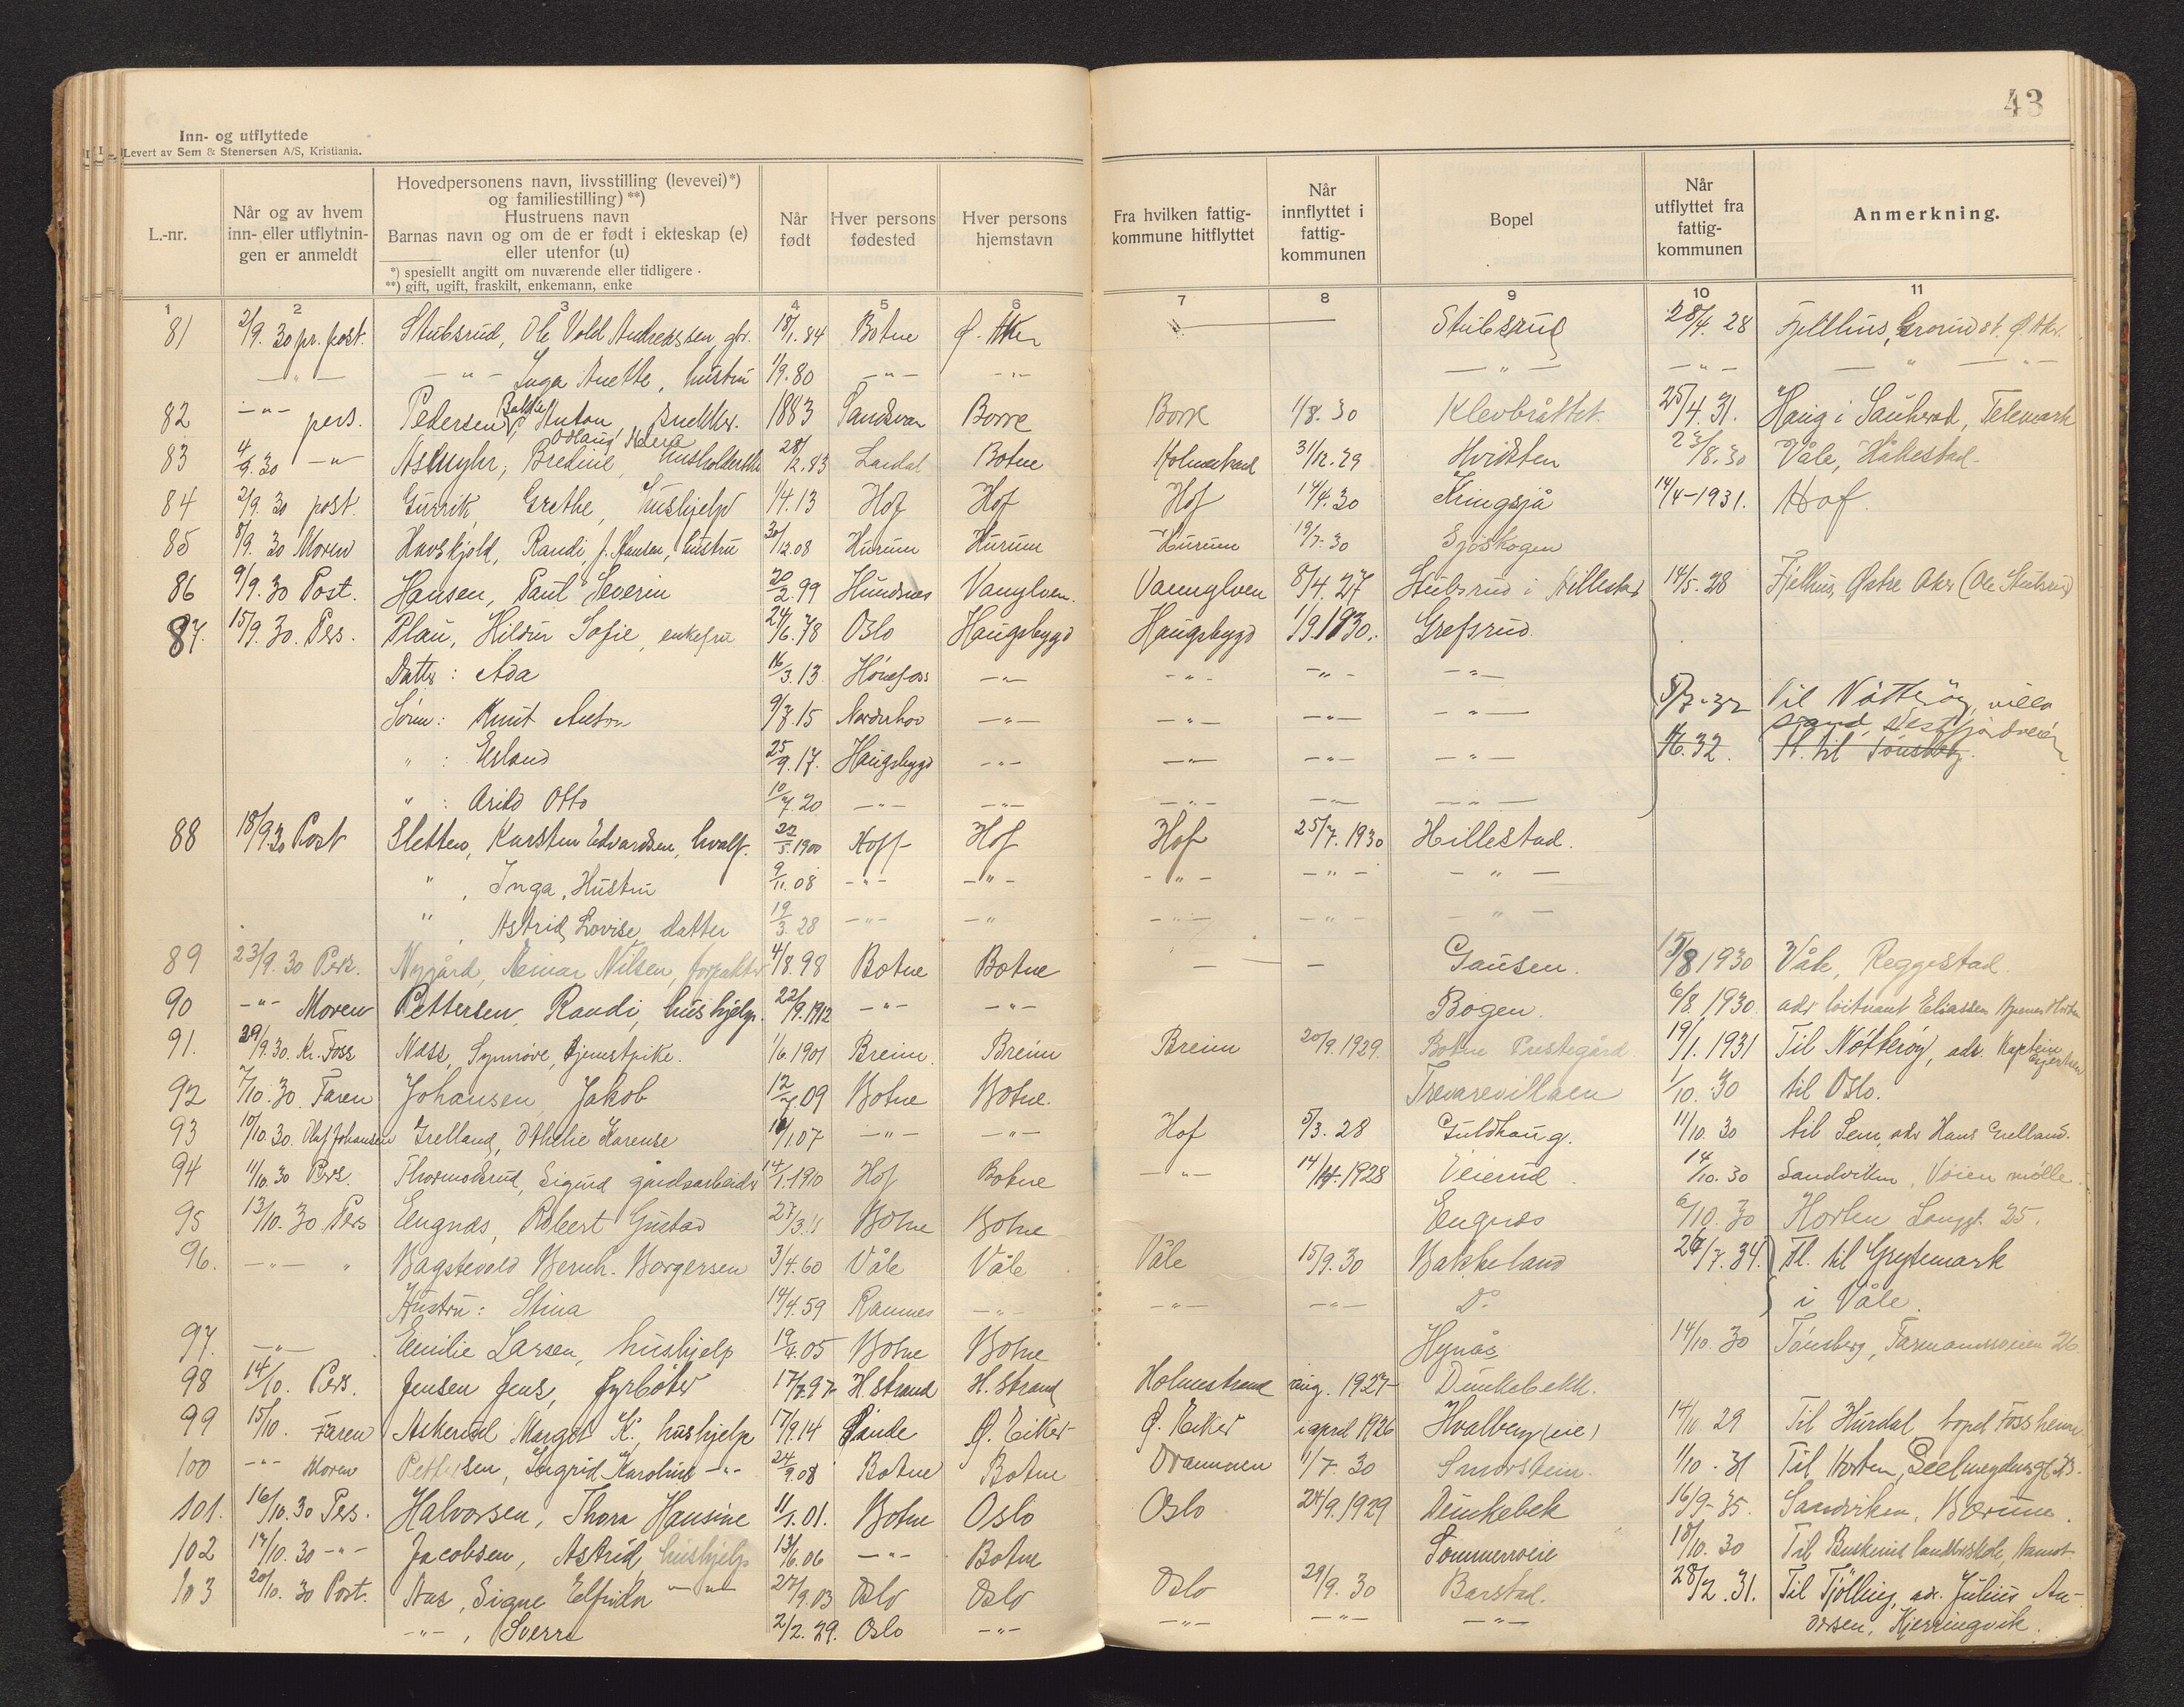 43
Inn- og utflyttede
Levert av Sem & Stenersen A/S, Kristiania.
L.-nr.
Når og av hvem inn- eller utflytnin- gen er anmeldt
Hovedpersonens navn, livsstilling (levevei)*) og familiestilling) **)
Hustruens navn
Barnas navn og om de er født i ekteskap (e) eller utenfor (u)
*) spesiellt angitt om nuværende eller tidligere.
**) gift, ugift, fraskilt, enkemann, enke
Når født
Hver persons fødested
Hver persons hjemstavn
Fra hvilken fattig- kommune hitflyttet
Når innflyttet i fattig- kommunen
Bopel
Når utflyttet fra fattig- kommunen
Anmerkning.
1 2 3 4 5 6 7 8 9 10 11
81 2/9. 30 pr. post. Stubsrud, Ole Vold Andreassen, gbr. 18/1. 84 Botne Ø. Aker — Stubsrud 28/4. 28 Fjellhus, Grorud st. Ø. Akr.
—"— —"— Inga Anette, hustru 1/9. 80 —"— —"— —"— —"— — " — " —
82 —"— pers. Pedersen, Anton snekker. 1883 Sandsvær Borre Borre 1/8. 30 Klevbråttet. 25/4. 31. Haug i Sauherad, Telemark
83 4/9. 30 —"— Bredine, husholderske 28/2. 83 Lardal Botne Holmestrand 31/12. 29 Hvidsten 23/8. 30 Våle, Håkestad.
84 2/9. 30 post. Gurrik, Grethe, hushjelp 1/4. 13 Hof Hof Hof 14/4. 30 Kringsjå 14/4-1931. Hof.
85 8/9. 30 Moren Havskjold, Randi, f. Hansen, hustru 30/12. 08 Hurum Hurum Hurum 19/7. 30 Sjøskogen
86 9/9. 30 Post. Hansen, Paul Severin 20/2. 99 Hundsnes Vanylven. Vannylven 8/4. 27 Stubsrud i Hillestad 14/5. 28 Fjellhus, Østre Aker (Ole Stubsrud)
87. 15/9. 30. Pers. Plau, Hildur Sofie, enkefru 24/6. 78 Oslo Haugsbygd Haugsbygd 1/9. 1930. Grefsrud.
Datter: Ada 16/3. 13 Hønefoss —"— —"— —"— —"—
Sønn: Knut Anton 9/7. 15 Norderhov —"— —"— —"— —"— 5/7-32 Til Nøtterøy, villa
" : Erland 25/9. 17. Haugsbygd —"— —"— —"— —"— 1/6. 32. Fl. til Tønsberg. Vestfjordveien
" : Arild Otto 10/7. 20 —"— —"— —"— —"— —"—
88 18/9. 30 Post Sletten, Karsten Edvardsen, hvalf. 22/5. 1900 Hoff Hof Hof 25/7. 1930 Hillestad.
" , Inga, Hustru 9/11. 08 —"— —"— —"— —"— —"—
" , Astrid Lovise, datter 19/3. 28 —"— —"— —"— —"— —"—
89 23/9. 30 Pers. Nygård, Reinar Nilsen, forpakter 4/8. 98 Botne Botne — — Gausen. 15/8 1930 Våle, Reggestad.
90 —"— Moren Pettersen, Randi, hushjelp. 22/9. 1912 —"— —"— Bogen. 6/8. 1930. adr løitnant Eliassen Horten
91. 29/9. 30. Kr. Foss Næss, Synnøve, tjenestpike. 1/6. 1901 Breim. Breim Breim 20/9. 1929. Botne Prestegård. 19/1. 1931 Til Nøtterøy, adr. Kaptein
92 7/10. 30. Faren Johansen, Jakob 12/7. 09 Botne Botne. Trevarevillaen 1/10. 30 til Oslo.
93 10/10. 30. Olaf Johansen Grelland, Othelie Karense 16/1 07 —"— —"— Hof 5/3. 28 Guldhaug. 11/10. 30 til Sem, adr Hans Grelland.
94 11/10. 30 Pers. Thormodsrud, Sigurd gårdsarbeider 14/1. 1910 Hof Botne —"— 14/4. 1928 Veierud. 14/10. 30 Sandviken, Vøien mølle.
95 13/10. 30 Pers Engnæs, Robert Gustav 27/3. 11 Botne Botne Engnæs 6/10. 30 Horten Langgt. 25.
96. —"— " Bagstevold Bernh. Borgersen 3/4. 60 Våle Våle Våle 15/9. 30 Bakkeland 26/7. 34. Fl. til Grytemark
Hustru: Stina 14/4. 59 Ramnes —"— —"— —"— Do i Våle.
97. —"— Emilie Larsen, hushjelp 19/4. 05 Botne Botne Hynås 14/10. 30 Tønsberg, Farmannsveien 26.
98 14/10. Pers. Jensen Jens, fyrbøter 17/7. 97. H. strand H. strand Holmestrand aug. 1927 Dunkebekk.
99 15/10. Faren Askerud Margit K. hushjelp 17/9. 14 Sande Ø. Eiker Ø. Eiker i april 1926 Hvalberg (eie) 14/11 29 Til Hurdal bopel Fossheim
100 —"— Moren Pettersen, Ingrid Karoline —"— 24/9. 08 Botne Botne Drammen 1/7. 30 Smørstein. 1/10. 31 Til Horten,
101. 16/10. 30 Pers. Halvorsen, Thora Hansine 11/1. 01. Botne Oslo Oslo 24/9. 1929 Dunkebek 16/9-35. Sandviken, Bærum.
102 17/10. 30 —"— Jacobsen, Astrid hushjelp 13/6. 06 —"— Botne Sommerroeie 18/10. 30 Til Buskerud landbrskole, Åmot
103 20/10. 30 Post. Aas, Signe Elfrida —"— 27/9. 03 Oslo Oslo Oslo 29/9. 30 Barstad. 28/2. 31. Til Tjølling, adr. Julius An-
—"—, Sverre 2/2. 29. Oslo —"— —"— —"— —"— dersen, Kjerringvik.